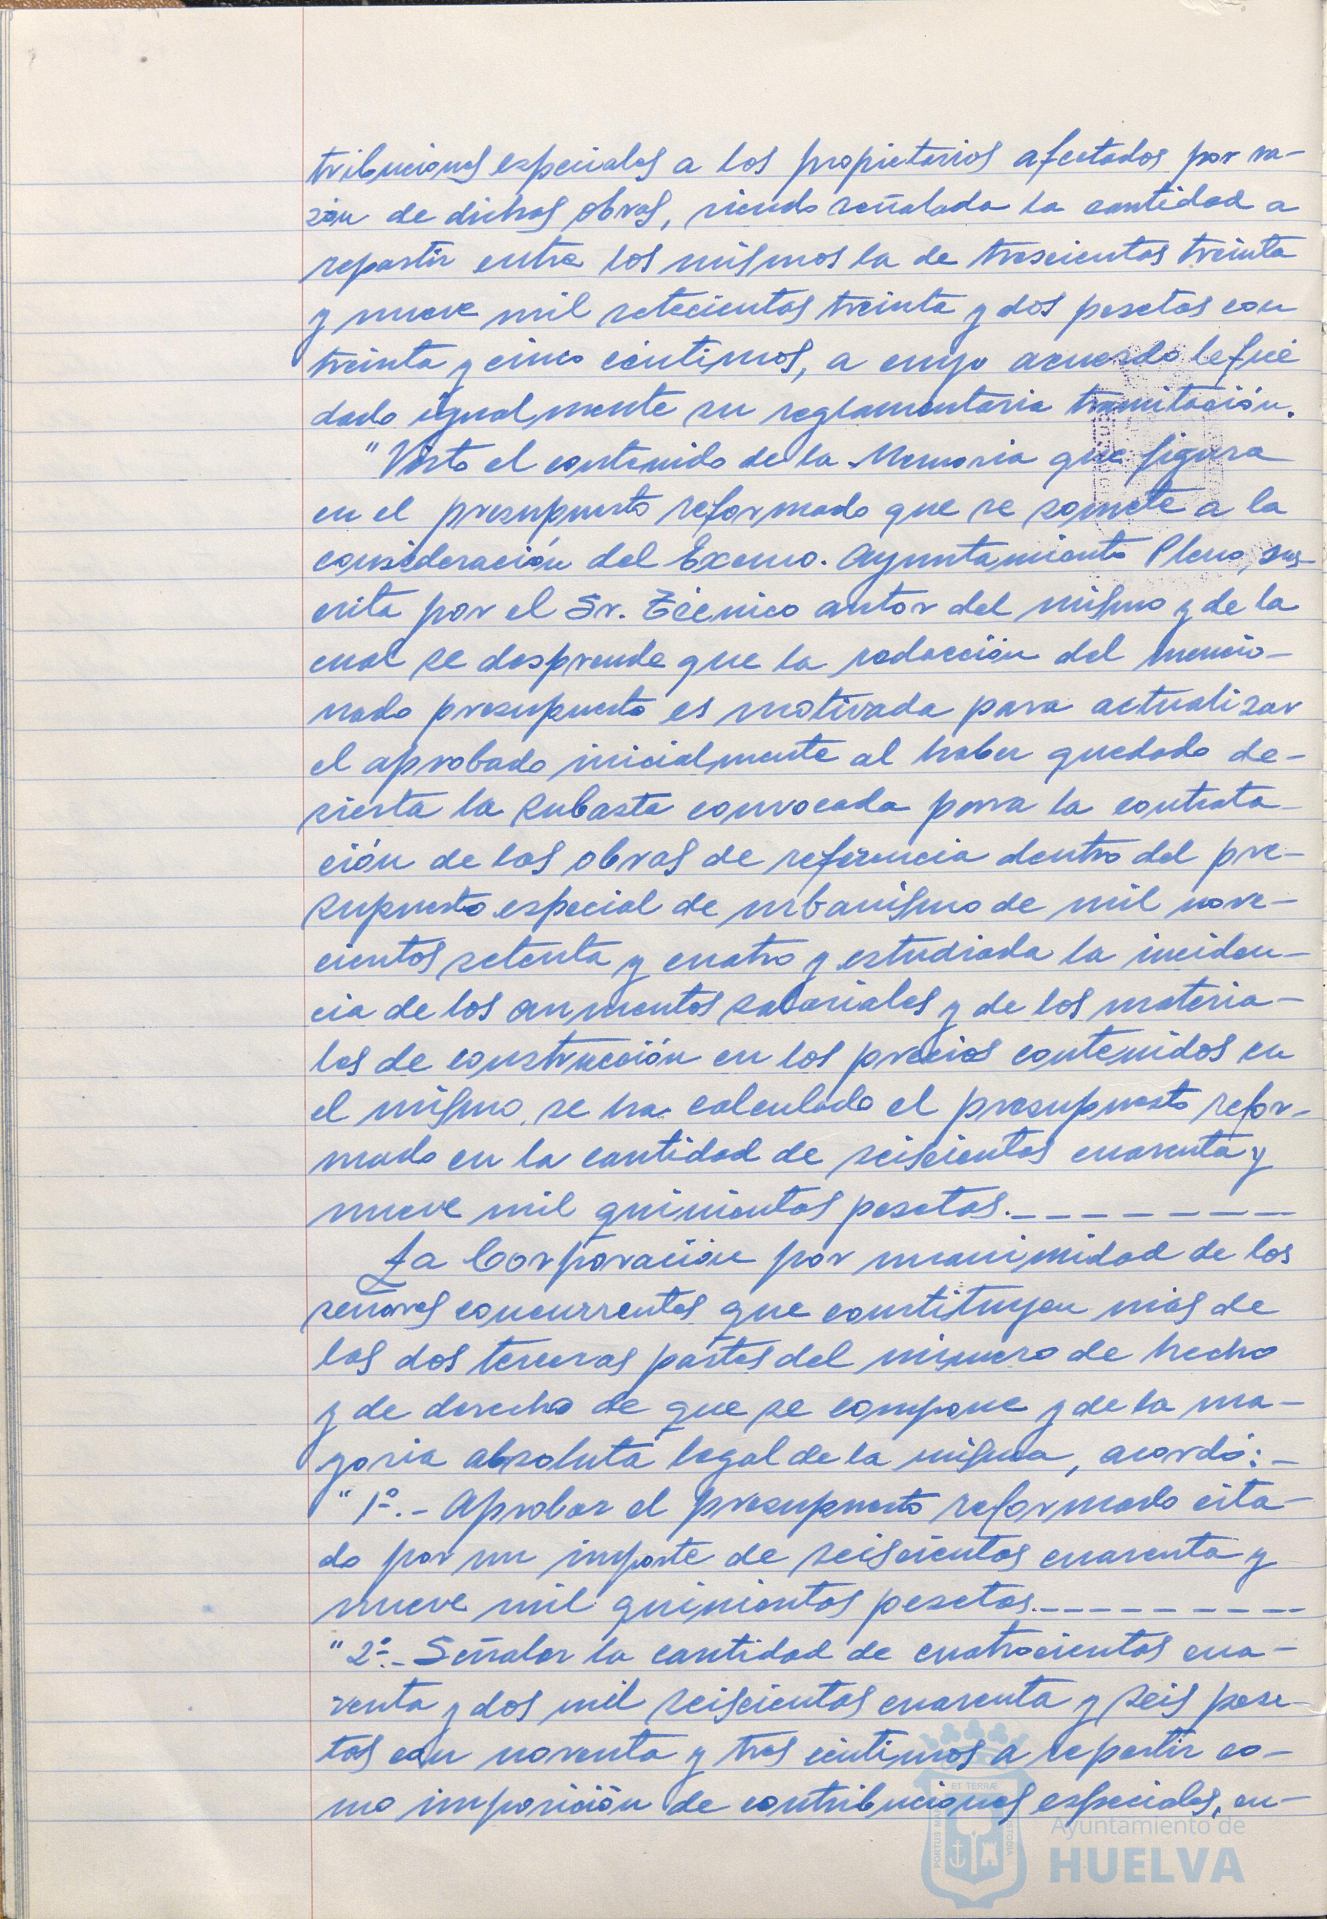 tribuciones especiales a los propietarios afectados por ra-
zón de dichas obras, siendo señalada la cantidad a
repartir entre los mismos la de trescientas treinta
y nueve mil setecientas treinta y dos pesetas con
treinta y cinco céntimos, a cuyo acuerdo le fué
dado igualmente su reglamentaria tramitación.
"Visto el contenido de la Memoria que figura
en el presupuesto reformado que se somete a la
consideración del Excmo. Ayuntamiento Pleno, sus-
crita por el Sr. Técnico autor del mismo y de la
cual se desprende que la redacción del mencio-
nado presupuesto es motivada para actualizar
el aprobado inicialmente al haber quedado de-
sierta la subasta convocada para la contrata-
ción de las obras de referencia dentro del pre-
supuesto especial de urbanismo de mil nove-
cientos setenta y cuatro y estudiada la inciden-
cia de los aumentos salariales y de los materia-
les de construcción en los precios contenidos en
el mismo, se ha calculado el presupuesto refor-
mado en la cantidad de seiscientas cuarenta y
nueve mil quinientas pesetas.---------
La Corporación por unanimidad de los
señores concurrentes que constituyen más de
las dos terceras partes del número de hecho
y de derecho de que se compone y de la ma-
yoría absoluta legal de la misma, acordó:-
"1º.- Aprobar el presupuesto reformado cita-
do por un importe de seiscientas cuarenta y
nueve mil quinientas pesetas.---------
"2º.- Señalar la cantidad de cuatrocientas cua-
renta y dos mil seiscientas cuarenta y seis pese-
tas con noventa y tres céntimos a repartir co-
mo imposición de contribuciones especiales, en-
Ayuntamiento de
HUELVA